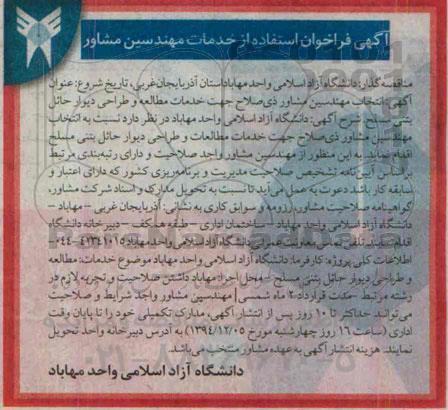 آگهی فراخوان استفاده از خدمات مهندسین مشاور
مناقصه گذار: دانشگاه آزاد اسلامی واحد مهاباد استان آذربایجان غربی، تاریخ شروع: عنوان
آگهی: انتخاب مهندسین مشاور ذی صلاح جهت خدمات مطالعه و طراحی دیوار حائل
بتنی مسلح شرح آگهی: دانشگاه آزاد اسلامی واحد مهاباد در نظر دارد نسبت به انتخاب
مهندسین مشاور ذی صلاح جهت خدمات مطالعات و طراحی دیوار حائل بتنی مسلح
اقدام نماید. به این منظور از مهندسین مشاور واجد صلاحیت و دارای رتبه بندی مرتبط
براساس آیین نامه تشخیص صلاحیت مدیریت و برنامه ریزی کشور که دارای اعتبار و
سابقه کار باشد دعوت به عمل می آید تا نسبت به تحویل مدارک و اسناد شرکت مشاور،
گواهینامه صلاحیت مشاور، رزومه و سوابق کاری به نشانی: آذربایجان غربی - مهاباد -
دانشگاه آزاد اسلامی واحد مهاباد - ساختمان اداری - طبقه همکف - دبیرخانه دانشگاه
اقدام نمایند. تلفن تماس معاونت عمرانی دانشگاه آزاد اسلامی واحد مهاباد ۴۱۳۴۱۰۱۵-۰۴۴
اطلاعات کلی پروژه: کارفرما: دانشگاه آزاد اسلامی واحد مهاباد موضوع خدمات: مطالعه
و طراحی دیوار حائل بتنی مسلح - محل اجرا: مهاباد داشتن صلاحیت و تجربه لازم در
رشته مرتبط - مدت قرارداد: ۲ ماه شمسی | مهندسین مشاور واجد شرایط و صلاحیت
می توانند حداکثر تا ۱۰ روز پس از انتشار آگهی، مدارک تکمیلی خود را تا پایان وقت
اداری (ساعت ۱۶ روز چهارشنبه مورخ ۱۳۹۴/۱۲/۰۵) به آدرس دبیرخانه واحد تحویل
نمایند. هزینه انتشار آگهی به عهده مشاور منتخب می باشد.
دانشگاه آزاد اسلامی واحد مهاباد